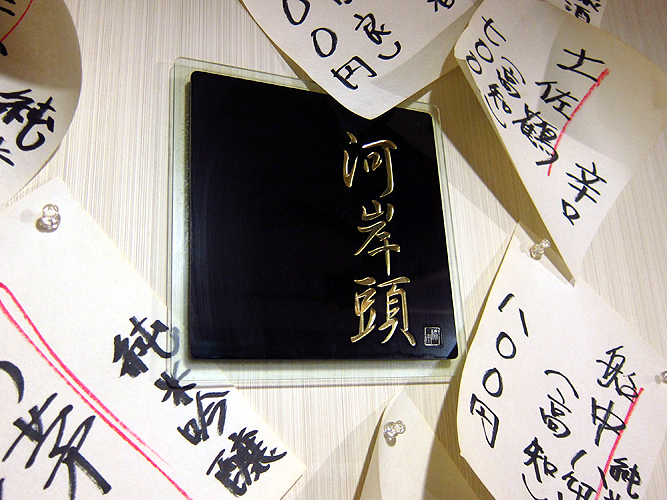 酒
〇〇円
良)
土佐鶴 辛口
(高知)
七〇〇
純米
河岸頭
純米吟醸
船中八策
純
(高知)
八〇〇円